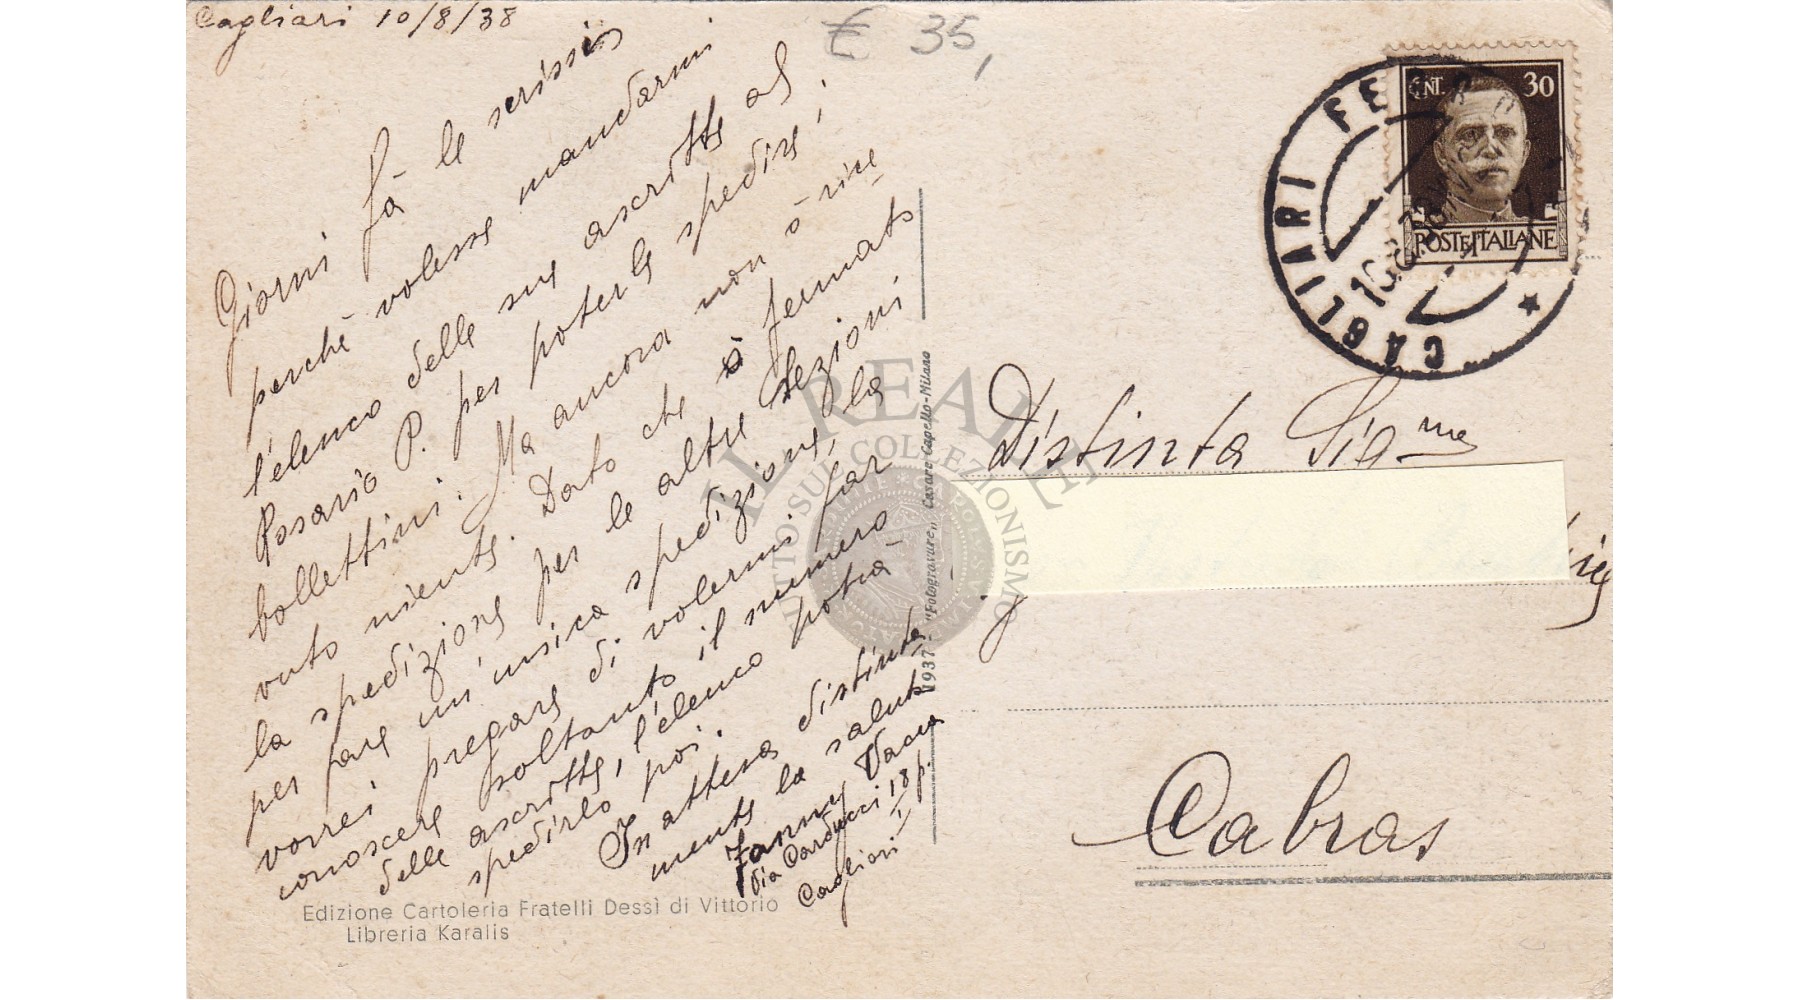 Cagliari 10/8/38
€ 35,
Giorni fà le scrissi
perchè volesse mandarmi
l'elenco delle sue ascritte al
Rosario P. per poterle spedire i
bollettini. Ma ancora non ò rice
vuto niente. Dato che è fermato
la spedizione per le altre Sezioni
per fare un'unica spedizione, la
vorrei pregare di volermi far
conoscere soltanto il numero
delle ascritte, l'elenco potrà
spedirlo poi.
In attesa distinta
mente la saluto
Fanny Vacca
Via Carducci 18 p. I
Cagliari
Edizione Cartoleria Fratelli Dessì di Vittorio
Libreria Karalis
1937 - "Fotogravure" Cesare Capello-Milano
IL REALE
TUTTO SUL COLLEZIONISMO
CENT. 30
POSTE ITALIANE
CAGLIARI FERR
Distinta Sig.na
Cabras